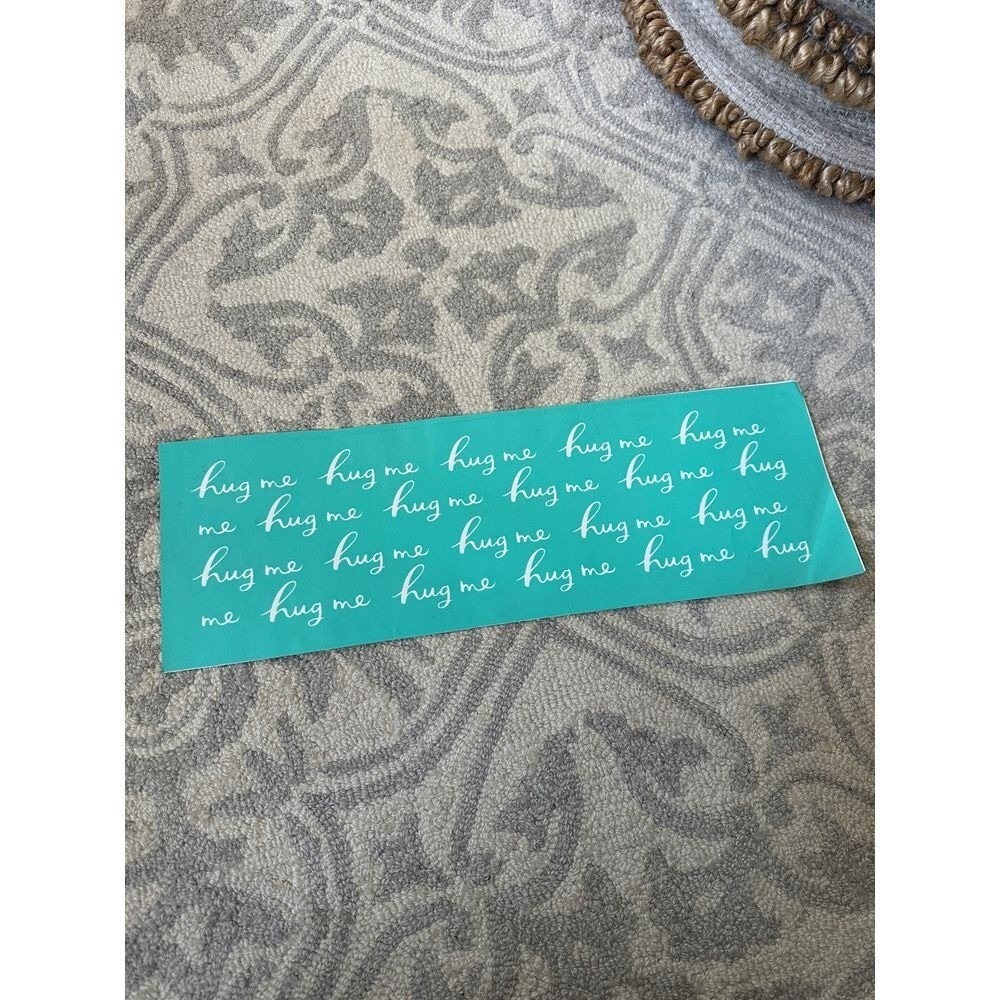 hug me hug me hug me hug me hug me
me hug me hug me hug me hug me hug
hug me hug me hug me hug me hug me
me hug me hug me hug me hug me hug